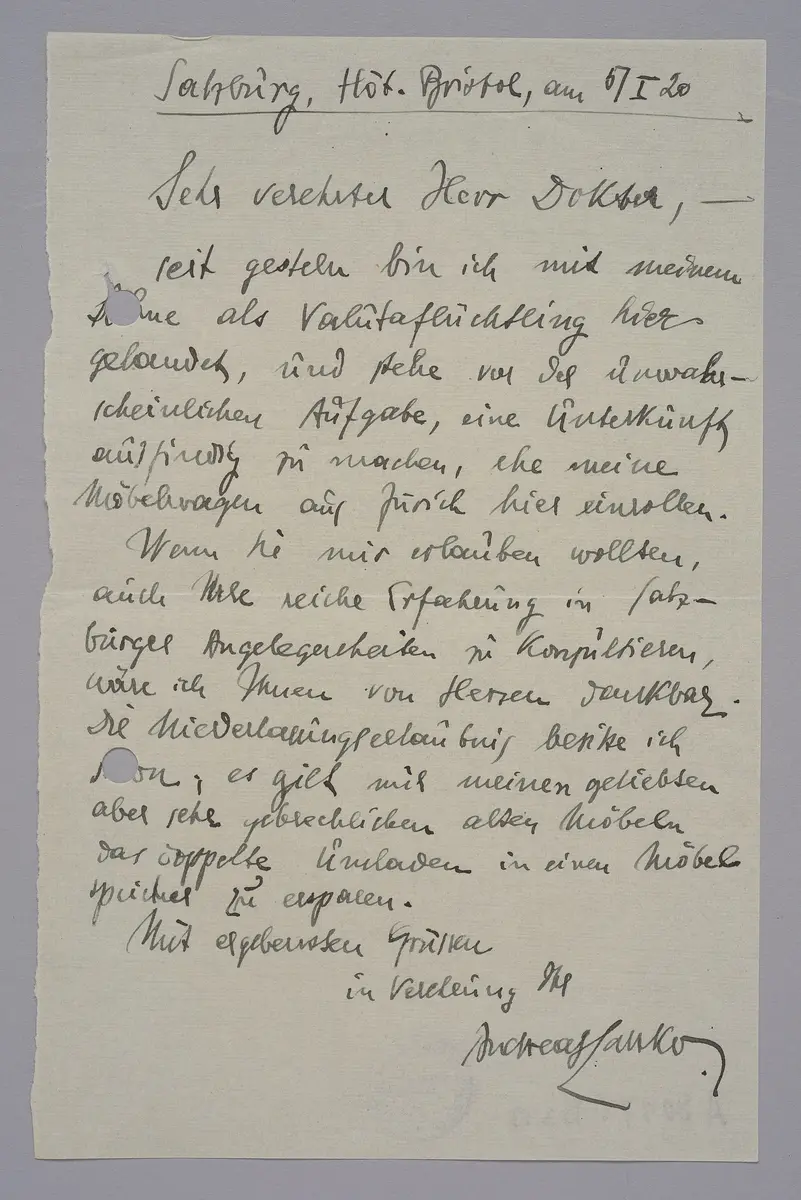 Salzburg, Hôt. Bristol, am 5/I 20
Sehr verehrter Herr Doktor, —
seit gestern bin ich mit meinem
Sohne als Valutaflüchtling hier
gelandet, und stehe vor der unwahr-
scheinlichen Aufgabe, eine Unterkunft
ausfindig zu machen, ehe meine
Möbelwagen aus Zürich hier einrollen.
Wenn Sie mir erlauben wollten,
auch Ihre reiche Erfahrung in Salz-
burger Angelegenheiten zu konsultieren,
wäre ich Ihnen von Herzen dankbar.
Die Niederlassungserlaubnis besitze ich
schon, es gilt mir meinen geliebten
aber sehr gebrechlichen alten Möbeln
das doppelte Umladen in einen Möbel
speicher zu ersparen.
Mit ergebensten Grüssen
in Verehrung Ihr
Andreas Latzko